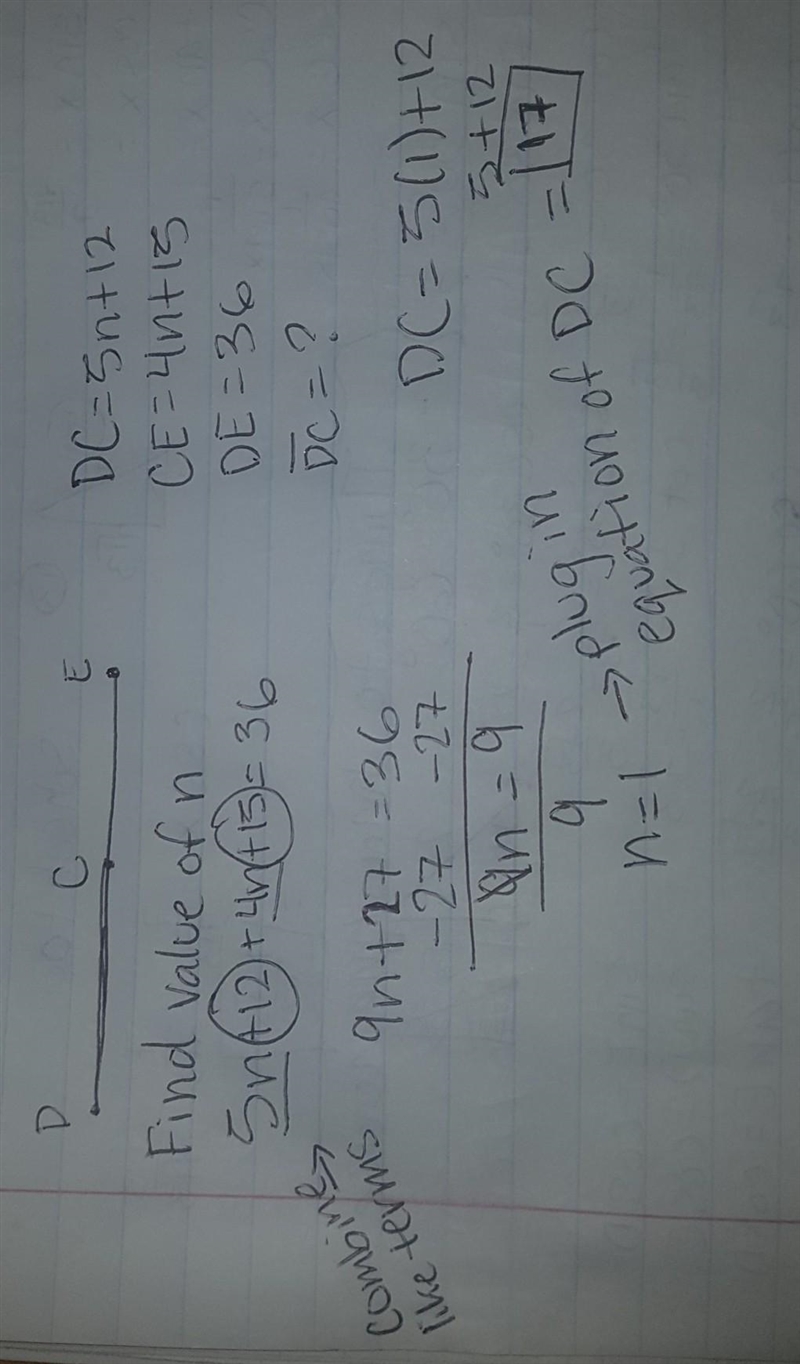 D C E
DC = 5n+12
CE = 4n+15
DE = 36
DC = ?
Find value of n
5n+12+4n+15=36
combine → like terms
9n+27 = 36
-27 -27
9n = 9
9
n=1 → plug in equation of DC
DC = 5(1)+12
5+12
= 17